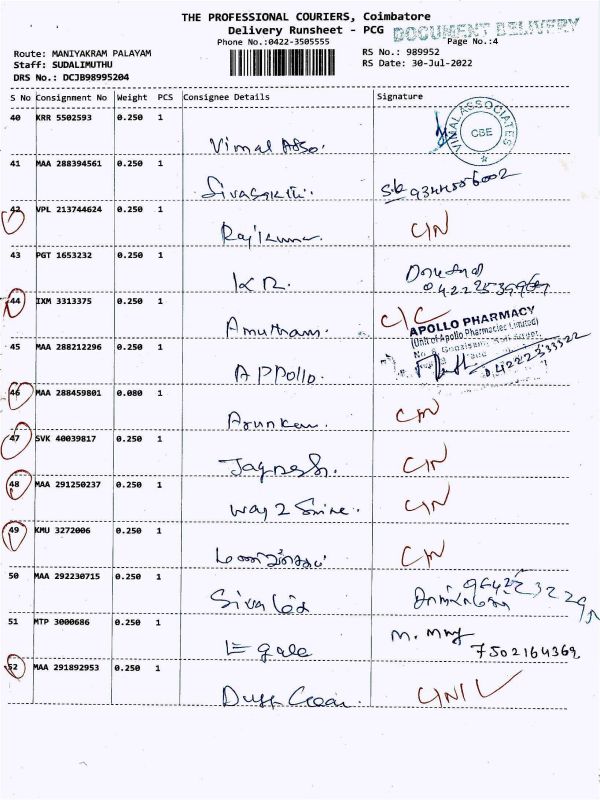 THE PROFESSIONAL COURIERS, Coimbatore
Delivery Runsheet - PCG
DOCUMENT DELIVERY
Phone No.:0422-3505555
Page No.:4
Route: MANIYAKRAM PALAYAM
RS No.: 989952
Staff: SUDALIMUTHU
RS Date: 30-Jul-2022
DRS No.: DCJB98995204
S No Consignment No Weight PCS Consignee Details Signature
40 KRR 5502593 0.250 1
Vimal Asso. VIMAL ASSOCIATES CBE
41 MAA 288394561 0.250 1
Sivasakthi.
42 VPL 213744624 0.250 1
Rajkumar. C/N
43 PGT 1653232 0.250 1
K R.
44 IXM 3313375 0.250 1
Amutham. C/C
APOLLO PHARMACY
(Unit of Apollo Pharmacies Limited)
45 MAA 288212296 0.250 1
APPollo. 04222533322
46 MAA 288459801 0.080 1
C/N
47 SVK 40039817 0.250 1
C/N
48 MAA 291250237 0.250 1
Way 2 C/N
49 KMU 3272006 0.250 1
C/N
50 MAA 292230715 0.250 1
51 MTP 3000686 0.250 1
7502164369
52 MAA 291892953 0.250 1